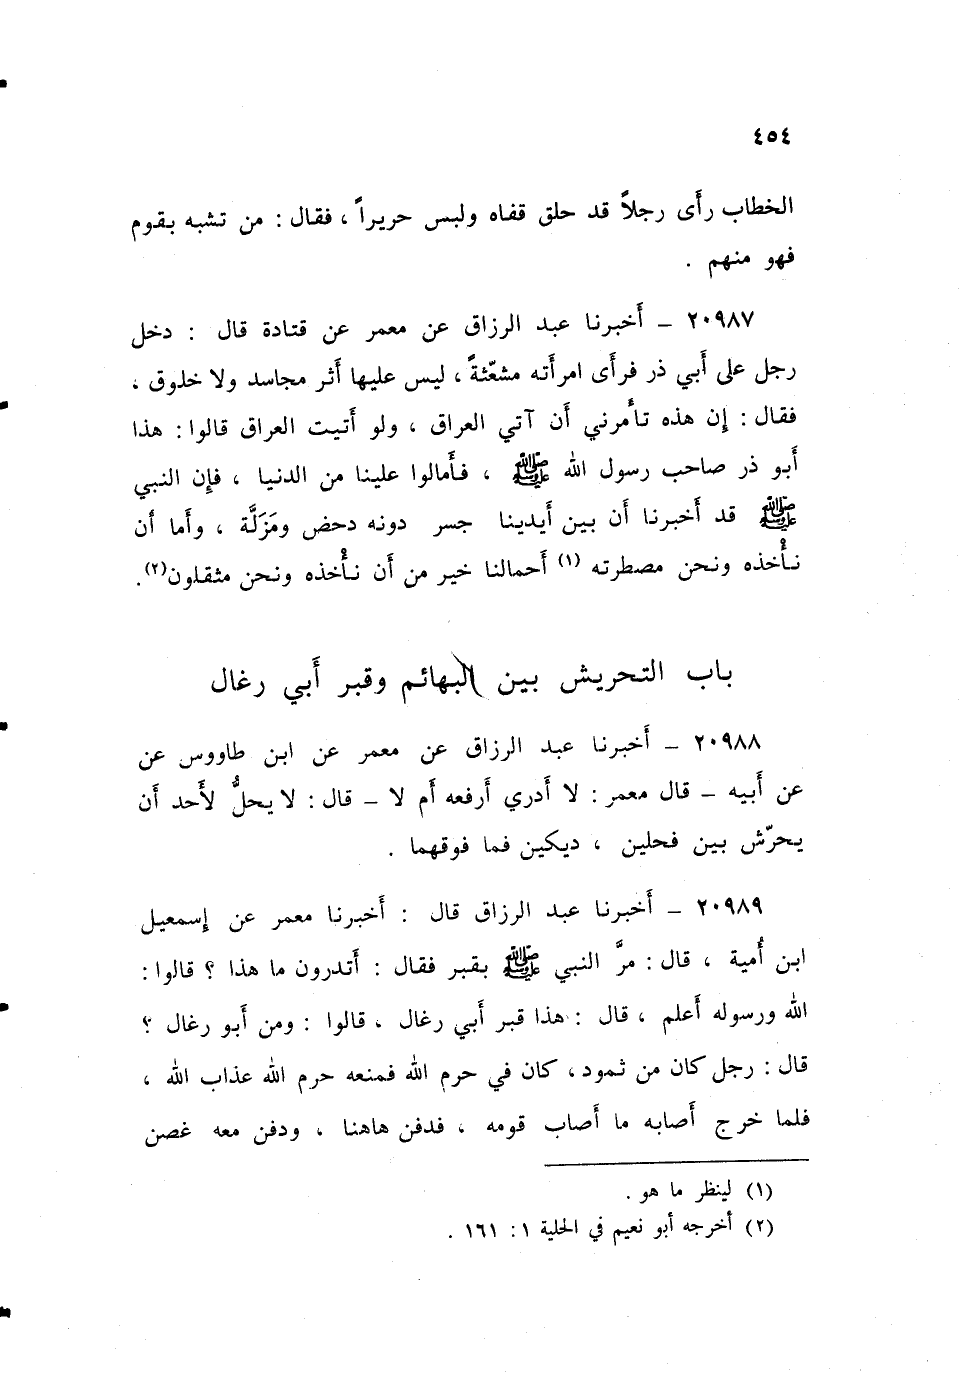 ٤٥٤
الخطاب رأَى رجلاً قد حلق قفاه ولبس حريراً ، فقال : من تشبه بقوم
فهو منهم .
٢٠٩٨٧ – أَخبرنا عبد الرزاق عن معمر عن قتادة قال : دخل
رجل على أَبي ذر فرأَى امرأَته مشعّثةً ، ليس عليها أَثر مجاسد ولا خلوق ،
فقال : إِن هذه تأْمرني أَن آتي العراق ، ولو أَتيت العراق قالوا : هذا
أَبو ذر صاحب رسول الله ﷺ ، فأَمالوا علينا من الدنيا ، فإِن النبي
ﷺ قد أَخبرنا أَن بين أَيدينا جسر دونه دحض ومَزَلَّة ، وأَما أَن
نأْخذه ونحن مصطرته (١) أَحمالنا خير من أَن نأْخذه ونحن مثقلون(٢).
باب التحريش بين البهائم وقبر أَبي رغال
٢٠٩٨٨ – أَخبرنا عبد الرزاق عن معمر عن ابن طاووس عن
عن أَبيه – قال معمر : لا أَدري أَرفعه أَم لا – قال : لا يحلُّ لأَحد أَن
يحرّش بين فحلين ، ديكين فما فوقهما .
٢٠٩٨٩ – أَخبرنا عبد الرزاق قال : أَخبرنا معمر عن إِسمعيل
ابن أُمية ، قال : مرَّ النبي ﷺ بقبر فقال : أَتدرون ما هذا ؟ قالوا :
الله ورسوله أَعلم ، قال : هذا قبر أَبي رغال ، قالوا : ومن أَبو رغال ؟
قال : رجل كان من ثمود ، كان في حرم الله فمنعه حرم الله عذاب الله ،
فلما خرج أَصابه ما أَصاب قومه ، فدفن هاهنا ، ودفن معه غصن
(١) لينظر ما هو .
(٢) أخرجه أبو نعيم في الحلية ١ : ١٦١ .